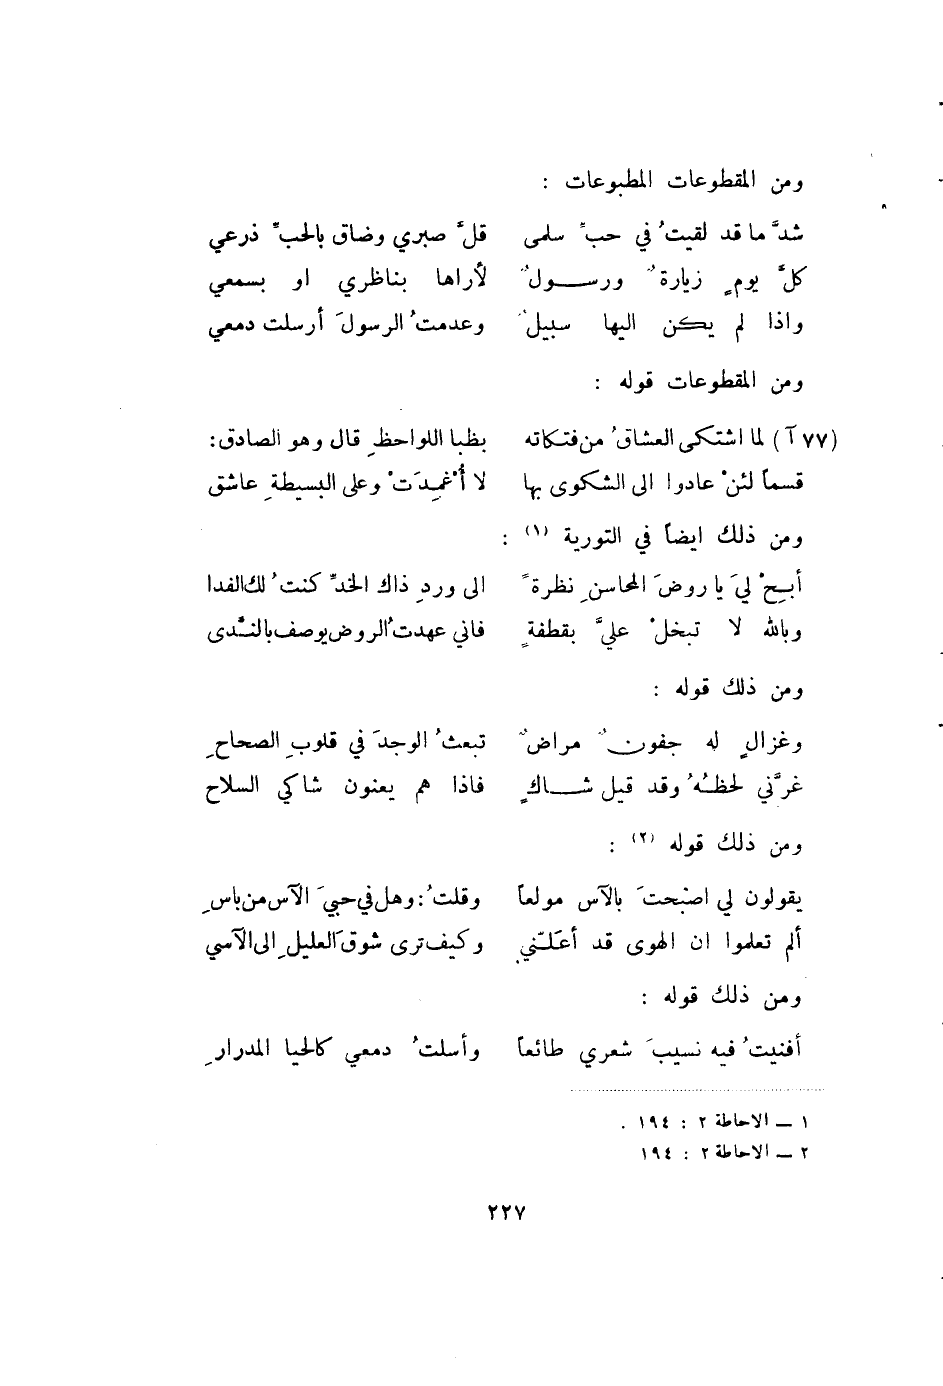 ومن المقطوعات المطبوعات :
شدَّ ما قد لقيتُ في حبِّ سلمى    قلَّ صبري وضاق بالحبِّ ذرعي
كلَّ يومٍ زيارةٌ ورســولٌ    لأراها بناظري او بسمعي
واذا لم يكن اليها سبيلٌ    وعدمتُ الرسولَ أرسلت دمعي
ومن المقطوعات قوله :
(٧٧ آ) لما اشتكى العشاقُ من فتكاته    بظبا اللواحظِ قال وهو الصادق:
قسماً لئنْ عادوا الى الشكوى بها    لا أُغمِدَتْ وعلى البسيطةِ عاشق
ومن ذلك ايضاً في التورية (١) :
أبِحْ ليَ يا روضَ المحاسنِ نظرةً    الى وردِ ذاك الخدِّ كنتُ لك الفدا
وبالله لا تبخلْ عليَّ بقطفةٍ    فاني عهدتُ الروض يوصف بالنَّدى
ومن ذلك قوله :
وغزالٍ له جفونٌ مراضٌ    تبعثُ الوجدَ في قلوبِ الصحاحِ
غرَّني لحظُهُ وقد قيل شــاكٍ    فاذا هم يعنون شاكي السلاح
ومن ذلك قوله (٢) :
يقولون لي اصبحتَ بالآس مولعاً    وقلتُ: وهل في حبيَ الآس من باسِ
ألم تعلموا ان الهوى قد أعلّني    وكيف ترى شوقَ العليلِ الى الآسي
ومن ذلك قوله :
أفنيتُ فيه نسيبَ شعري طائعاً    وأسلتُ دمعي كالحيا المدرارِ
١ ــ الاحاطة ٢ : ١٩٤ .
٢ ــ الاحاطة ٢ : ١٩٤
٢٢٧